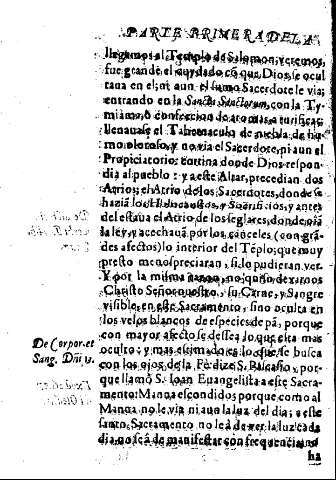 PARTE PRIMERA DE LA
llegamos al Templo de Salomon, veremos,
fue grande el cuydado cõ que Dios se ocul
taua en el; ni aun el sumo Sacerdote le via;
entrando en la Sancta Sanctorum, con la Ty-
miama, ò confeccion de aromas, a turificar,
llenauase el Tabernaculo de niebla de hu
mo oloroso, y no via el Sacerdote, ni aun el
Propiciatorio: cortina donde Dios respon-
dia al pueblo: y a este Altar, precedian dos
Atrios; el Atrio de los Sacerdotes, donde se
haziã los Holocaustos, y Sacrificios, y antes
del estaua el Atrio de los seglares, donde oiã
la ley, y acechauã por los canceles (con grã-
des afectos) lo interior del Tẽplo; que muy
presto menospreciaran, si lo pudieran ver.
Y por la misma razon, no quiso dexarnos
Christo Señor nuestro, su Carne, y Sangre
visible, en este Sacramento, sino oculta en
los velos blancos de especies de pã, porque
con mayor afecto se dessea lo que està mas
oculto: y mas estimado es lo que se busca
con los ojos de la Fè dize S. Pascasio, por-
que llamò S. Ioan Euangelista a este Sacra-
mento: Manna escondido: porque como al
Manna no le via ni aun la luz del dia; a este
santo Sacramento no le à de ver la luz cada
dia, no se à de manifestar con frequencia: no
ha
De Corpor. et
Sang. Dñi 13.